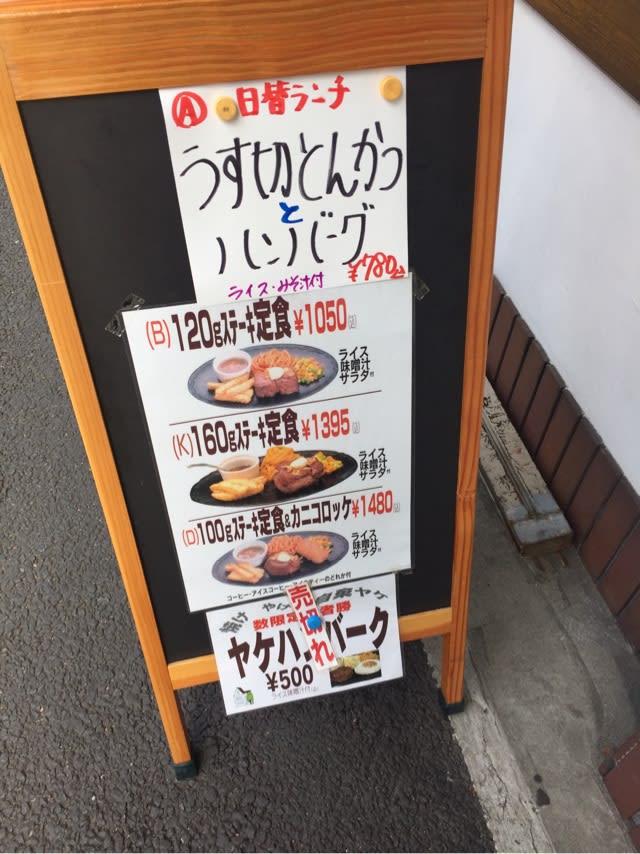 Ⓐ 日替ランチ
うす切とんかつ
と
ハンバーグ
¥780
ライス・みそ汁付
(B)120gステーキ定食¥1050
ライス
味噌汁
サラダ付
(K)160gステーキ定食¥1395
ライス
味噌汁
サラダ付
(D)100gステーキ定食&カニコロッケ¥1480
ライス
味噌汁
サラダ付
コーヒー・アイスコーヒー・
のどれか付
売切れ
数限定
者勝
ヤケハ
バーグ
¥500
ライス味噌汁付